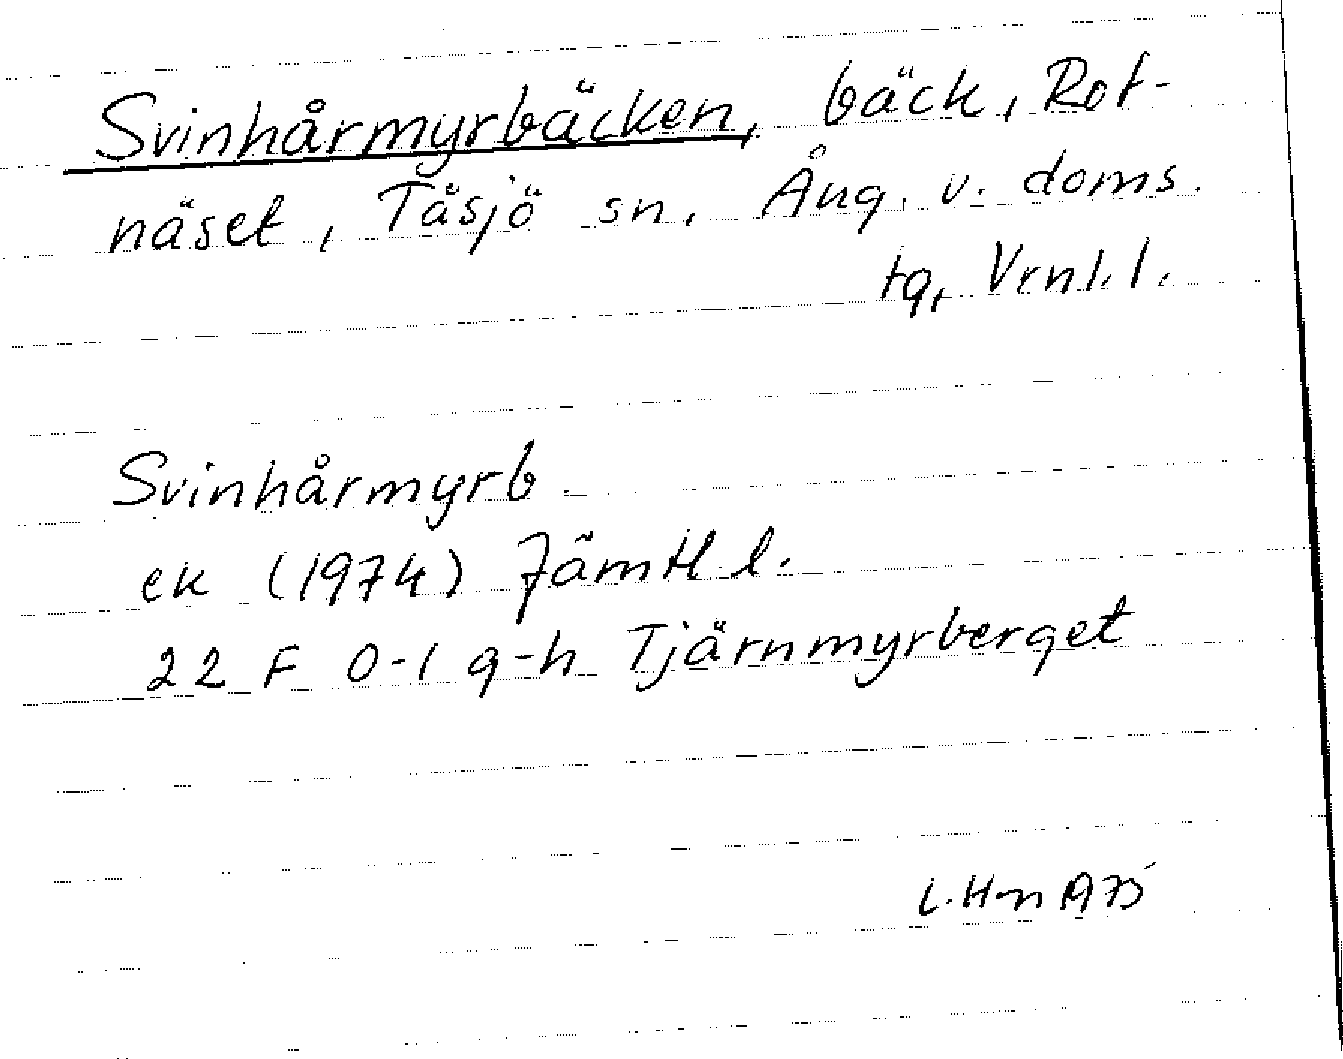 Svinhårmyrbäcken, bäck, Rot-
näset, Tåsjö sn, Ång. v. doms.
tg, Vrnl. l.
Svinhårmyrb
ek (1974) Jämtl l.
22 F 0-1 g-h Tjärnmyrberget
L.H-n 1975